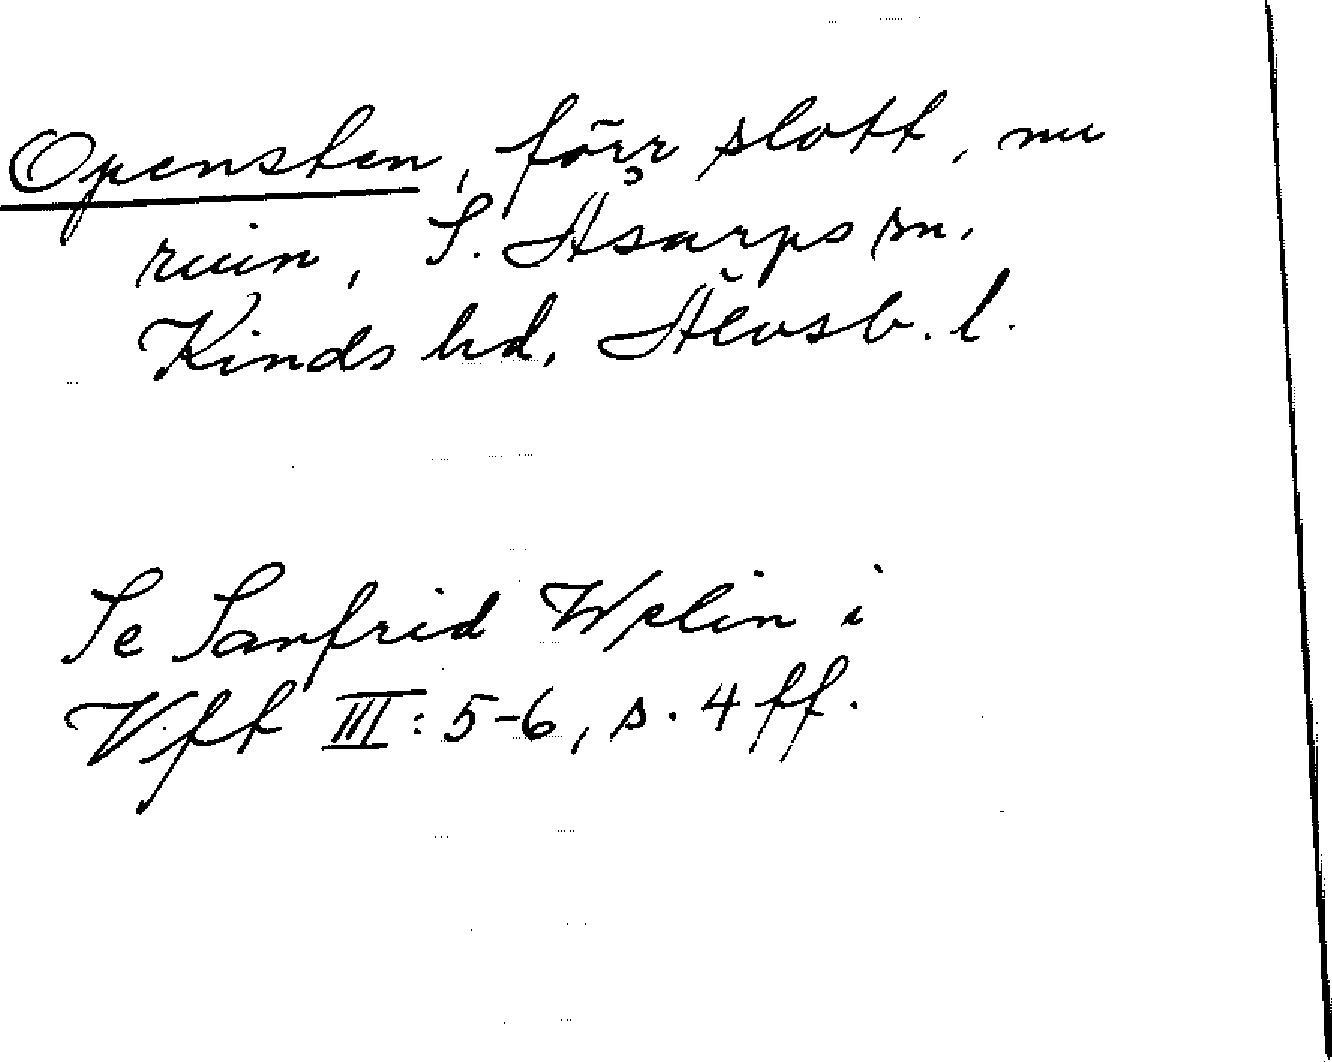 Opensten, förr slott, nu
ruin, S. Åsarps sn.
Kinds hd, Älvsb. l.
Se Sanfrid Welin i
Vft III: 5-6, s. 4 ff.